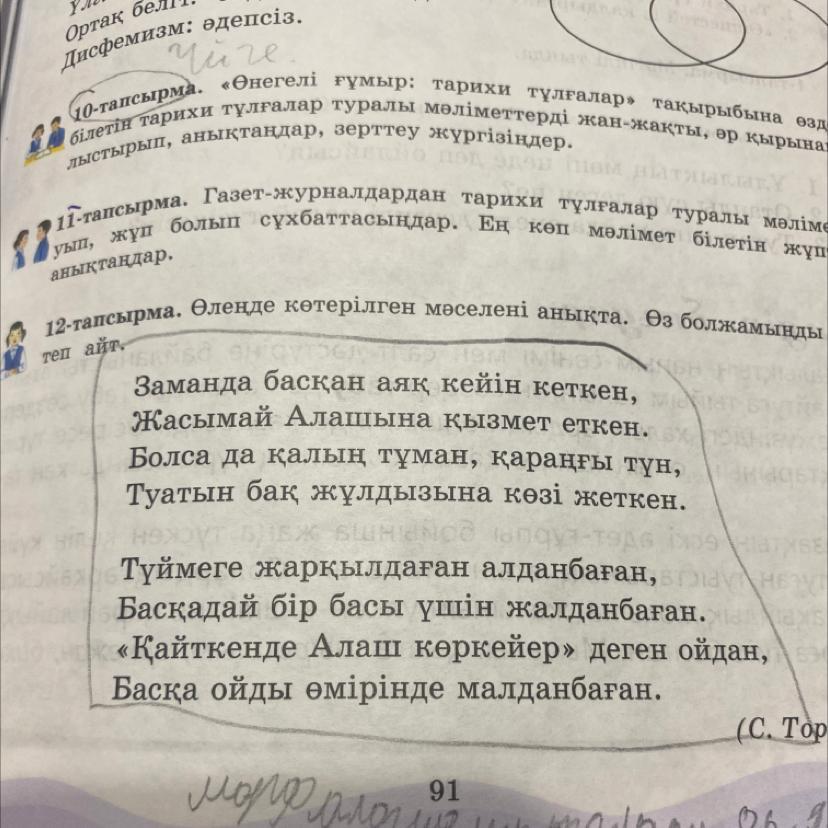 Ортақ белгі:
Дисфемизм: әдепсіз.
Үйге.
10-тапсырма. «Өнегелі ғұмыр: тарихи тұлғалар» тақырыбына өзд
білетін тарихи тұлғалар туралы мәліметтерді жан-жақты, әр қырына
лыстырып, анықтаңдар, зерттеу жүргізіңдер.
11-тапсырма. Газет-журналдардан тарихи тұлғалар туралы мәліме
уып, жұп болып сұхбаттасыңдар. Ең көп мәлімет білетін жұп
анықтаңдар.
12-тапсырма. Өлеңде көтерілген мәселені анықта. Өз болжамыңды
теп айт.
Заманда басқан аяқ кейін кеткен,
Жасымай Алашына қызмет еткен.
Болса да қалың тұман, қараңғы түн,
Туатын бақ жұлдызына көзі жеткен.
Түймеге жарқылдаған алданбаған,
Басқадай бір басы үшін жалданбаған.
«Қайткенде Алаш көркейер» деген ойдан,
Басқа ойды өмірінде малданбаған.
(С. Тор
91